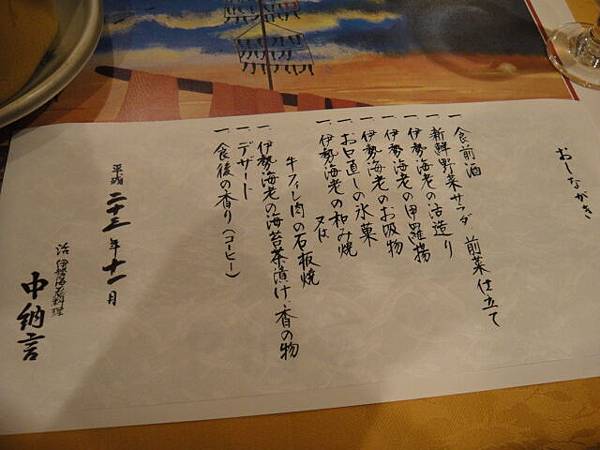 おしながき
一 食前酒
一 新鮮野菜サラダ 前菜仕立て
一 伊勢海老の活造り
一 伊勢海老の甲羅揚
一 伊勢海老のお吸物
一 お口直しの氷菓
一 伊勢海老の和み焼
又は
牛フィレ肉の石板焼
一 伊勢海老の海苔茶漬け・香の物
一 デザート
一 食後の香り(コーヒー)
平成二十三年十一月
活伊勢海老料理
中納言